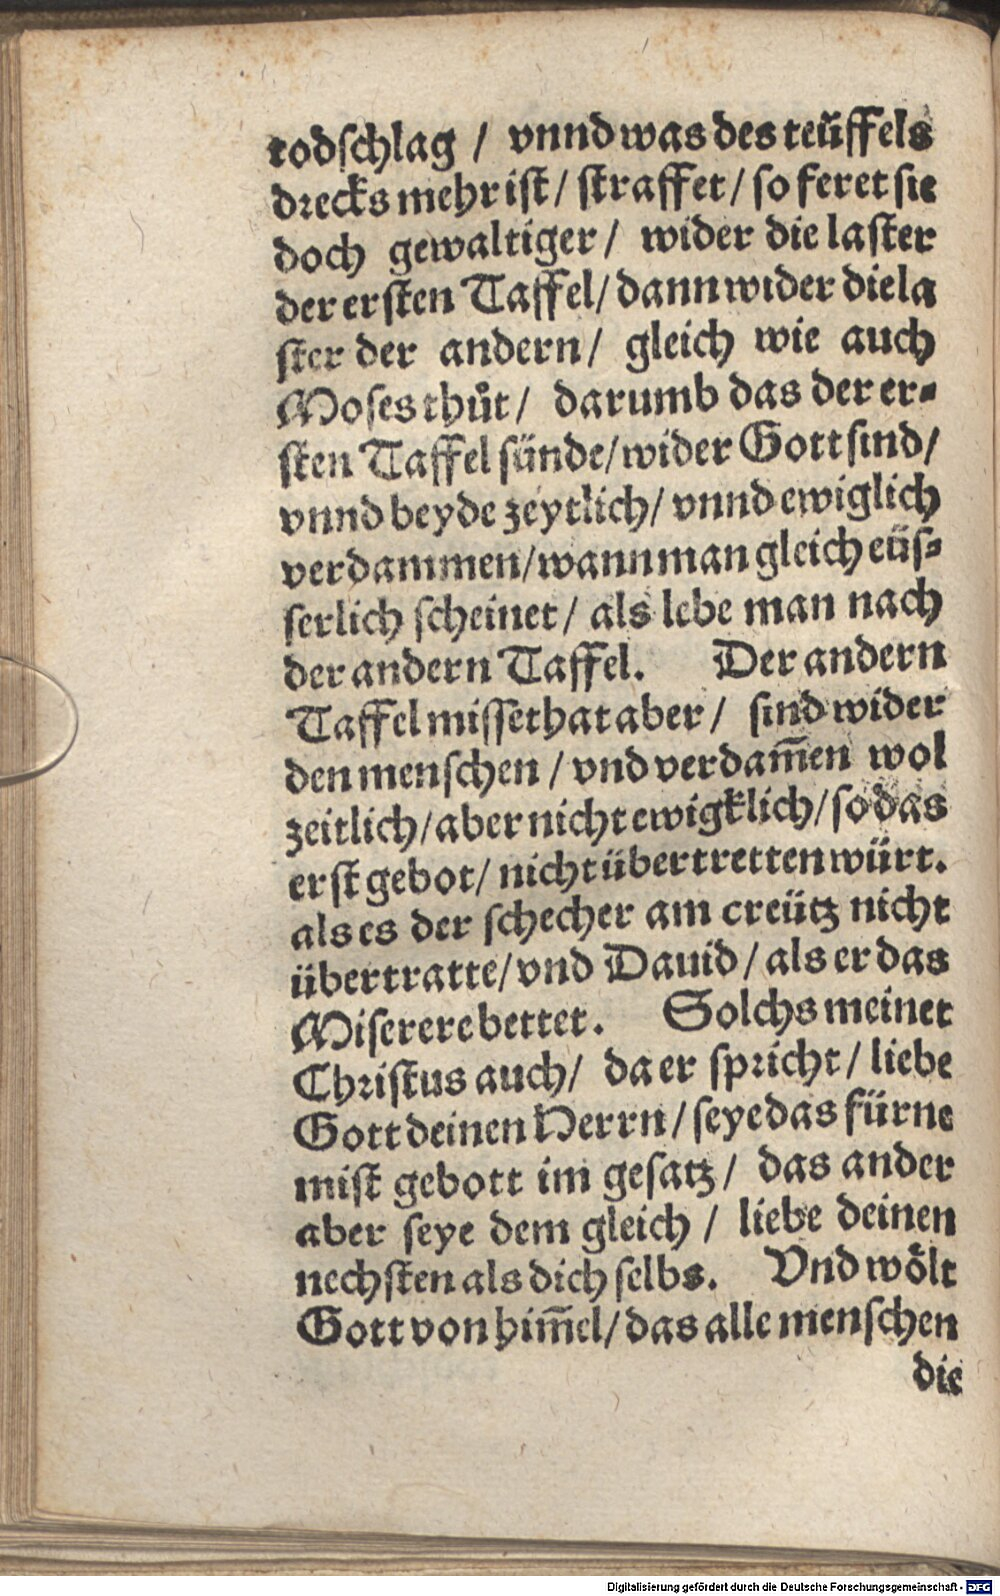 todſchlag / vnnd was des teüffels
drecks mehr iſt / ſtraffet / ſo feret sie
doch gewaltiger / wider die laſter
der erſten Taffel / dann wider die la
ſter der andern / gleich wie auch
Moſes thůt / darumb das der er⸗
ſten Taffel ſünde / wider Gott ſind /
vnnd beyde zeytlich / vnnd ewiglich
verdammen / wann man gleich eüſ⸗
ſerlich ſcheinet / als lebe man nach
der andern Taffel. Der andern
Taffel miſſethat aber / ſind wider
den menſchen / vnd verdam̄en wol
zeitlich / aber nicht ewigklich / ſo das
erſt gebot / nicht übertretten würt.
als es der ſchecher am creütz nicht
übertratte / vnd Dauid / als er das
Miſerere bettet. Solchs meinet
Chriſtus auch / da er ſpricht / liebe
Gott deinen Herrn / ſeye das fürne
miſt gebott im geſatz / das ander
aber ſeye dem gleich / liebe deinen
nechſten als dich ſelbs. Vnd wölt
Gott von him̄el / das alle menſchen
die
Digitalisierung gefördert durch die Deutsche Forschungsgemeinschaft - DFG